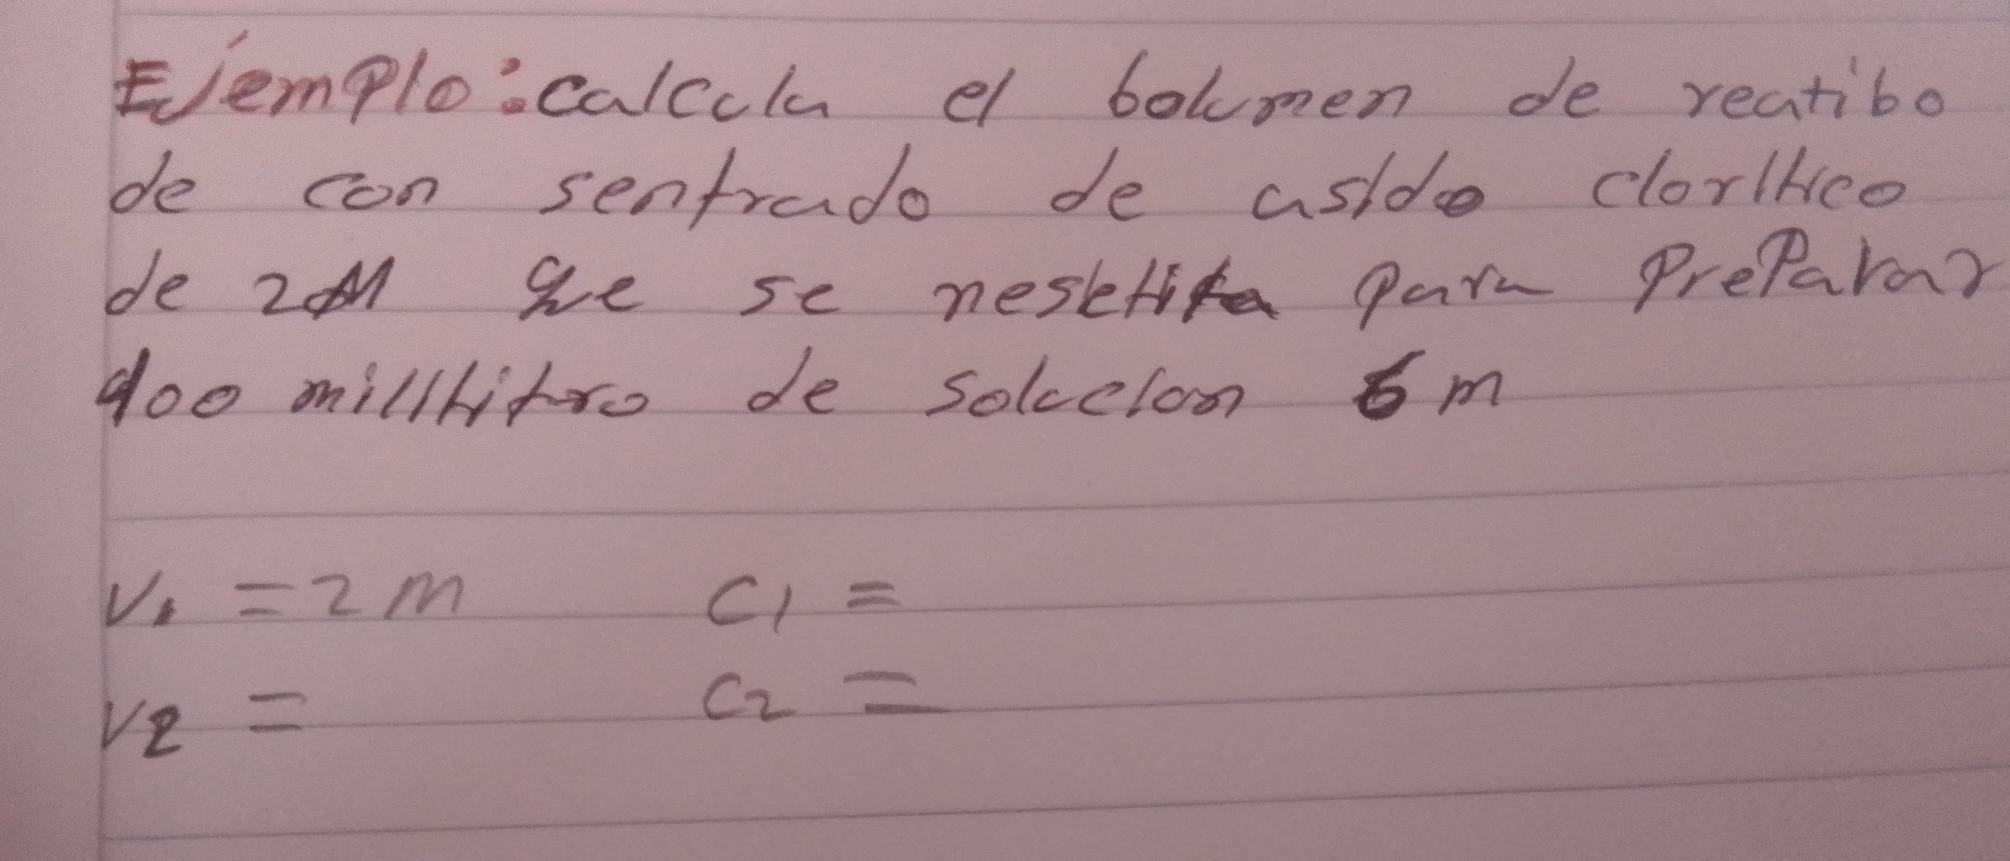 Ejemplo: calcula el bolumen de reatibo
de con sentrado de asido clorihico
de 2M que se para preparar
400 de solucion 6 m
V1 = 2 m C1 =
V2 = C2 =